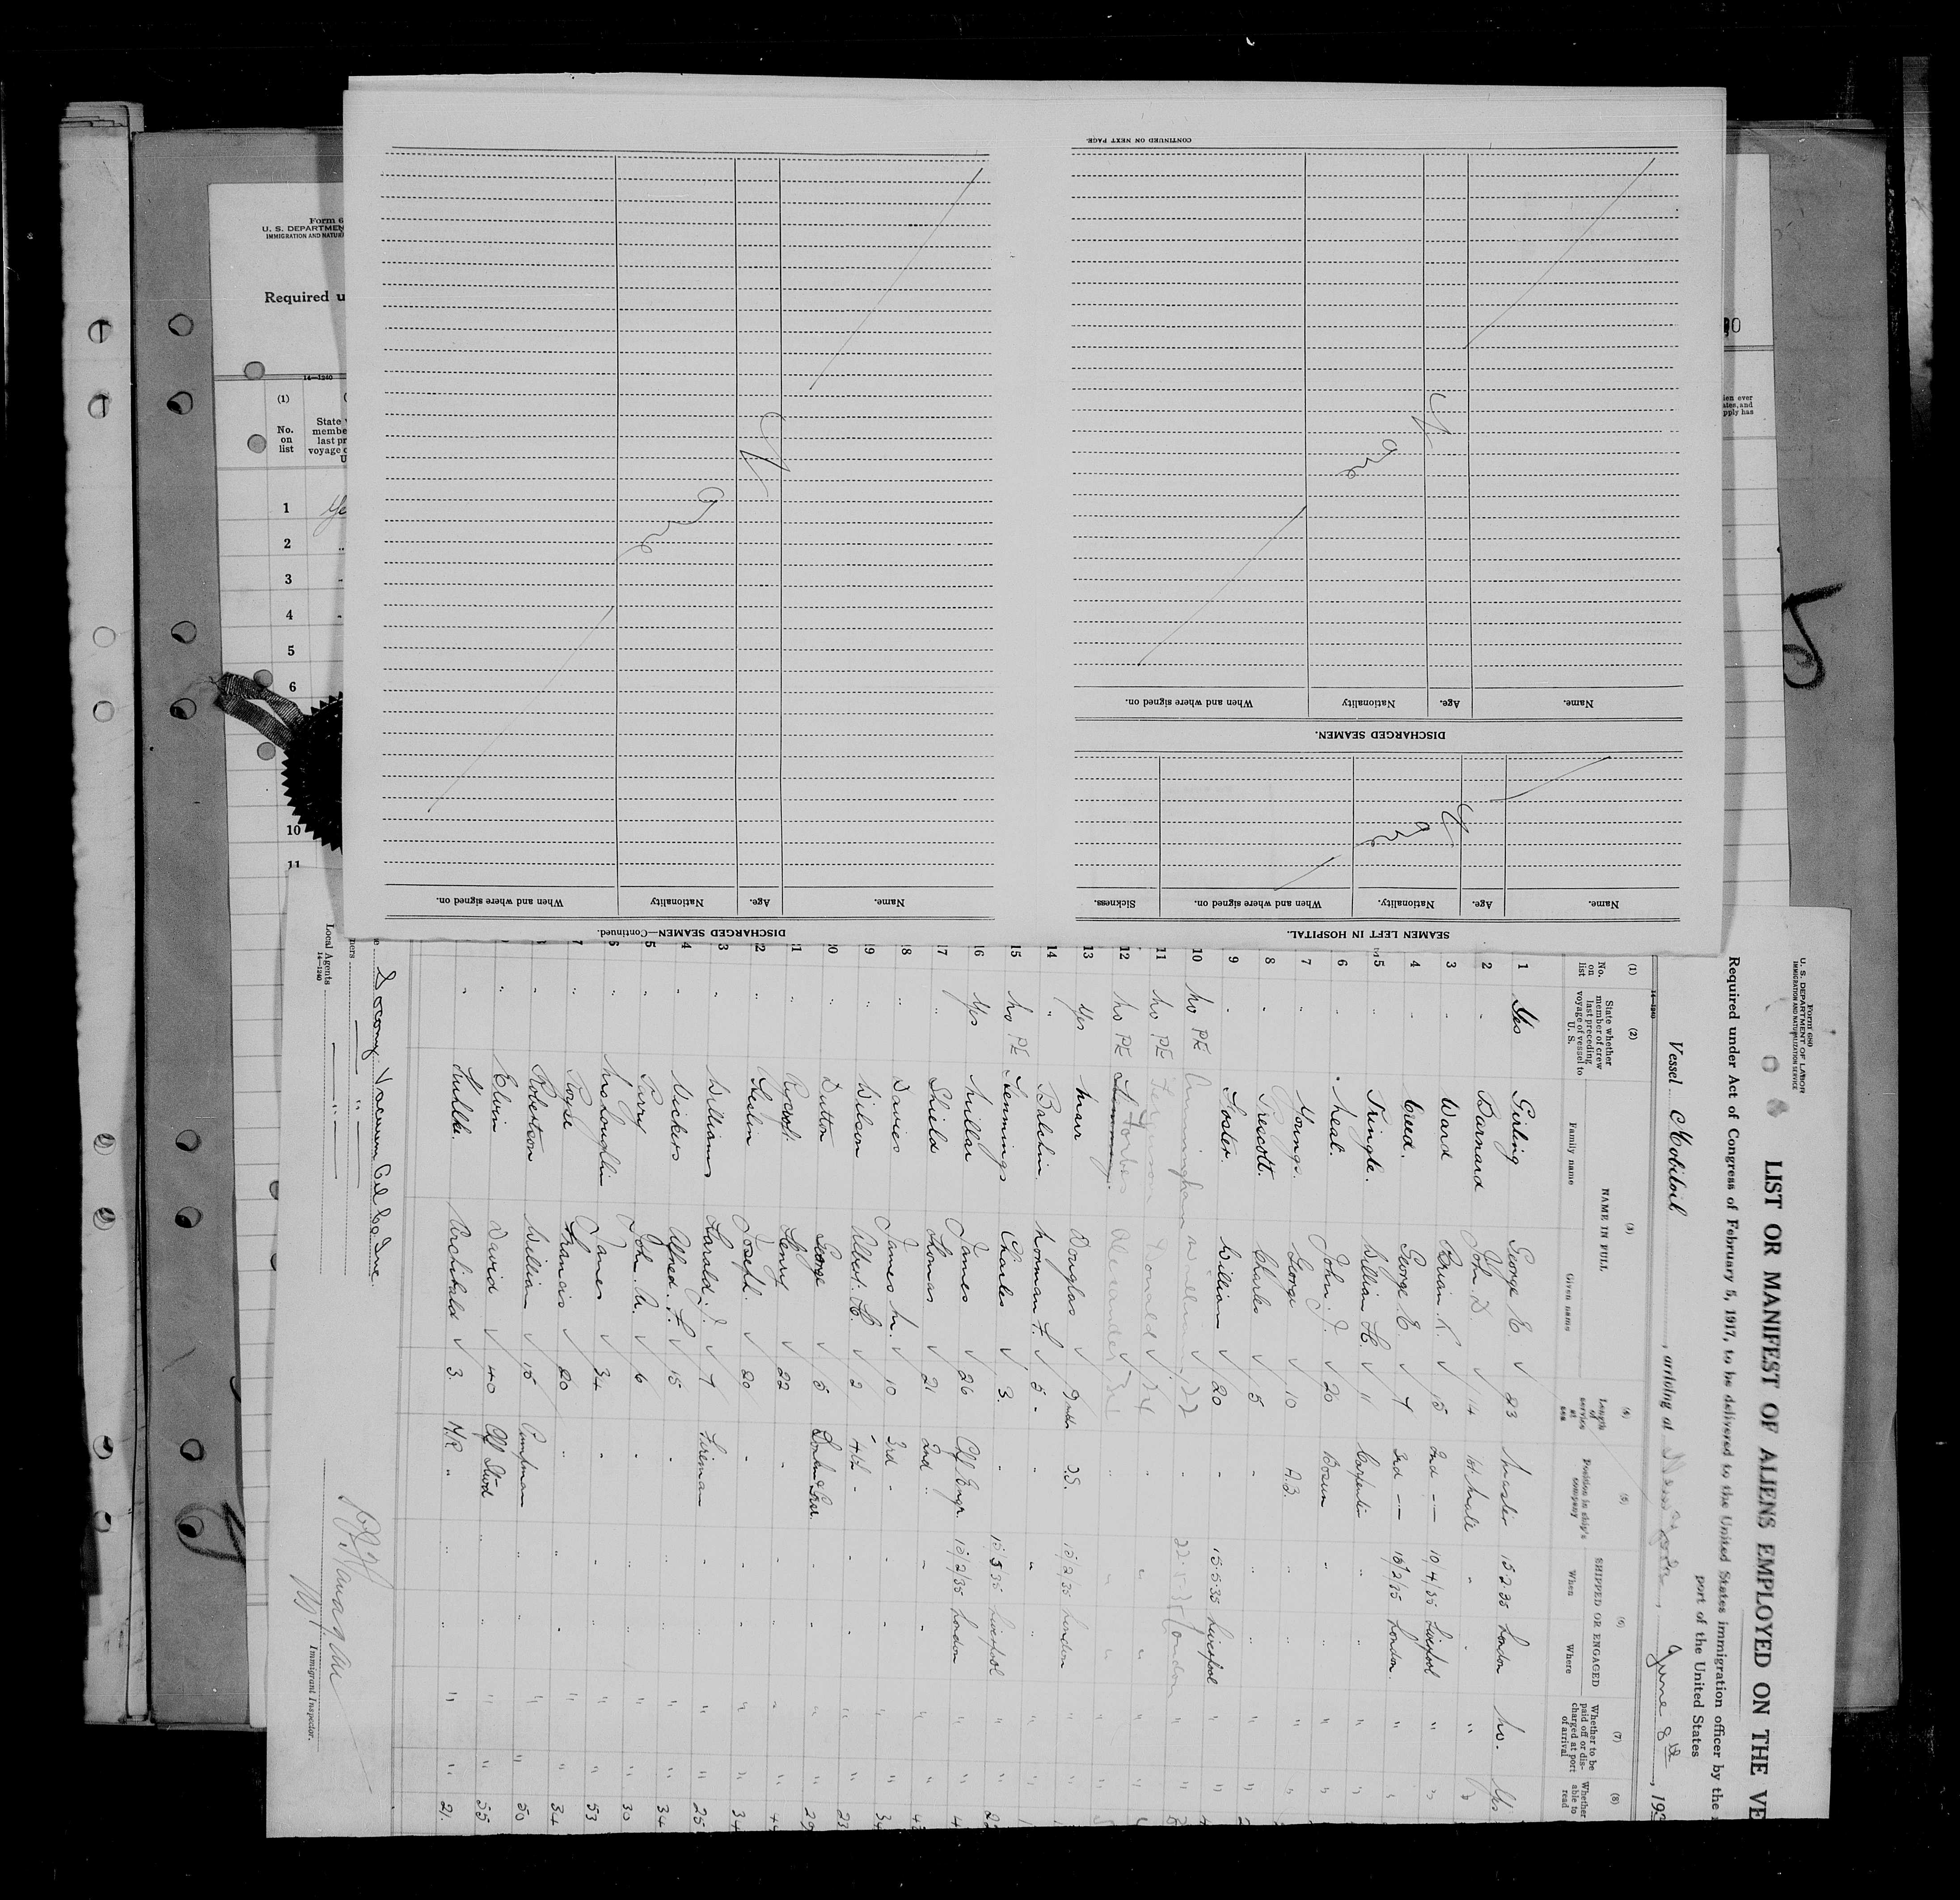 CONTINUED ON NEXT PAGE.
Name. Age. Nationality When and where signed on.
DISCHARGED SEAMEN.
Name. Age. Nationality. When and where signed on. Sickness.
SEAMEN LEFT IN HOSPITAL.
Name. Age. Nationality When and where signed on.
DISCHARGED SEAMEN—Continued.
Form 6
U. S. DEPARTMEN
IMMIGRATION AND NATUR
Required u
14—1240
(1)
No. on list
1
2
3
4
5
6
10
11
Form 680
U. S. DEPARTMENT OF LABOR
IMMIGRATION AND NATURALIZATION SERVICE
LIST OR MANIFEST OF ALIENS EMPLOYED ON THE VE
Required under Act of Congress of February 5, 1917, to be delivered to the United States immigration officer by the
port of the United States
Vessel Mobiloil, arriving at New York, June 8th, 193
14—1240
(1) (2) (3) (4) (5) (6) (7) (8)
No. on list
State whether member of crew last preceding voyage of vessel to U. S.
NAME IN FULL
Family name Given name
Length of service at sea
Position in ship's company
SHIPPED OR ENGAGED
When Where
Whether to be paid off or discharged at port of arrival
Whether able to read
1 Yes Girling George E. 23 Master 15 2 35 London No. Yes
2 " Barnard John D. 14 1st Mate " " "
3 " Ward Brian K. 15 2nd — 10/4/35 Liverpool " "
4 " Creed. George E. 7 3rd — 15/2/35 London. " "
5 " Tringle. William H. 11 Carpenter " " " "
6 " Neal. John J. 20 Bosun " " " "
7 " Young. George 10 A.B. " " " "
8 " Prescott. Charles 5 " " " " "
9 " Foster. William 20 " 15.5.35 Liverpool " "
10 No PE Cunningham William 22 " 22.5.35 London " "
11 No PE Ferguson Donald 24 " " " " "
12 No PE Forbes Alexander " " " " "
13 Yes Muir Douglas 9 mths O.S. 15/2/35 London " "
14 " Balshin Norman F. 5 " " " " "
15 No PE Jennings Charles 3. " 15/5/35 Liverpool " "
16 Yes Millar James 26 Chf Engr. 15/2/35 London " "
17 " Shield Thomas 21 2nd " " " " "
18 " Davies James M. 10 3rd " " " " "
19 " Wilson Albert H. 2 4th " " " " " 23
20 " Dutton George 5 " " " " 29
21 " Henry 22 " " " "
22 " Heslin Joseph. 20 " " " " " 34
23 " Williams Harald J. 7 Fireman " " " " 25
24 " Vickers Alfred. F. 15 " " " " " 34
25 " Parry John. A. 6 " " " " " 30
26 " McLoughlin James 34 " " " " " 53
27 " Royse Francis 20 " " " " " 34
" Robertson William 15 Pumpman " " " " 50
" Elvin David 40 Chf Stwd " " " " 55
" Archibald 3. " " " " 21.
Socony Vacuum Oil Co Inc.
Local Agents
14—1240
Immigrant Inspector.